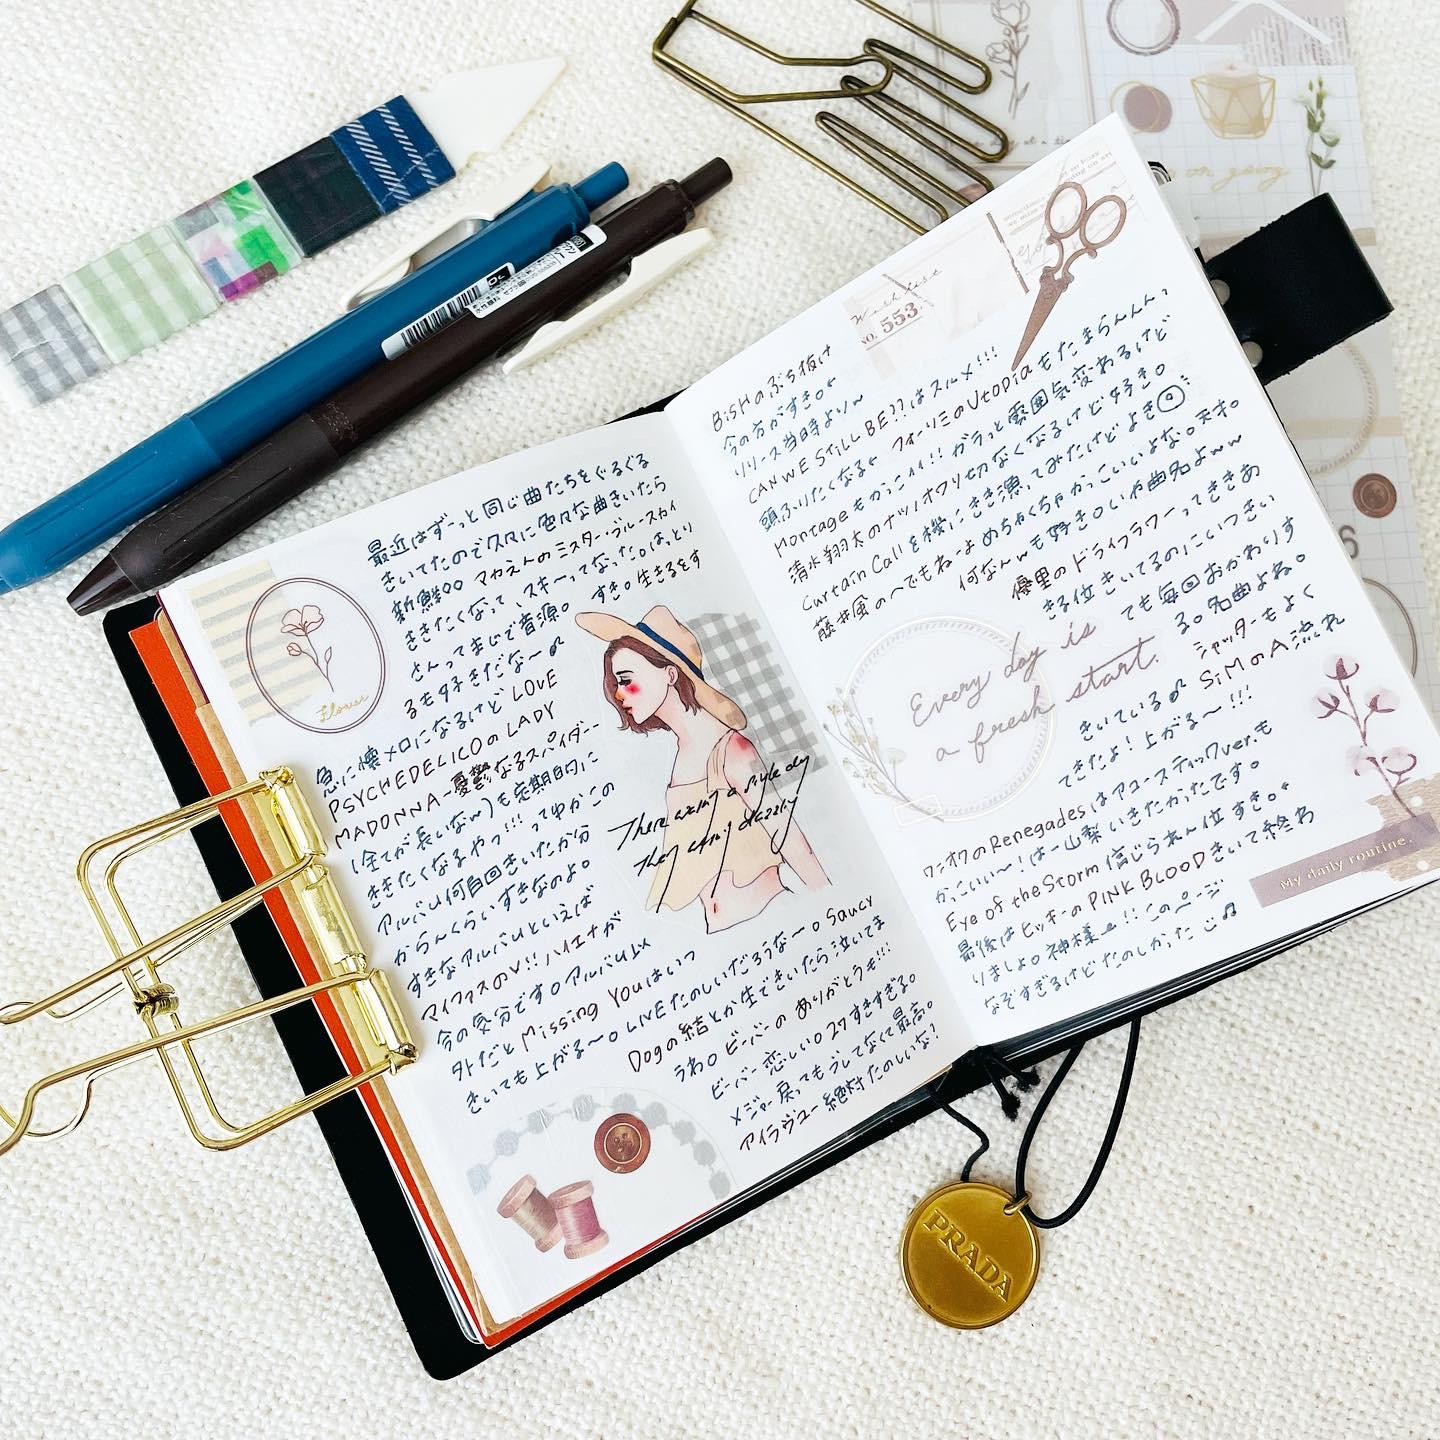 最近はずーっと同じ曲たちをぐるぐる
きいてたので久々に色々な曲きいたら
新鮮○○ マカえんのミスター・ブルースカイ
ききたくなって、スキーってなった。はっとり
さんってまじで音源。すき。生きるをす
るも好きだな〜
急に懐メロになるけど LOVE
PSYCHEDELICOのLADY
MADONNA-憂鬱なるスパイダー-
(全てが長いなw)も定期的に
ききたくなるやつ!!! って中かこの
アルバム何百回きいたか分
からんくらいすきなのよ。
すきなアルバムといえば
マイファスのV!! ハイエナが
今の気分です。アルバム以
外だと Missing Youはいつ
きいても上がる〜。LIVEたのしいだろうな〜。Saucy
Dogの結とか生できいたら泣いてま
うわ。ビーバーの ありがとうも!!!
ビーバー恋しい。27すきすぎる。
メジャー戻ってもブレてなくて最高。
アイラヴユー絶対たのしいな?
Flower
There was a style day
they
BiSHのぶち抜け
今の方がすき。
リリース当時よりw
CAN WE STiLL BE??はスルメ!!!
頭ふりたくなる フォーリミのUtopiaもたまらんんっ
Montageもかっこイイ!! ガラっと雰囲気変わるけど
清水翔太のナツノオワリ切なくなるけど好き。
Curtain Callを機にきき漁ってみたけどよき
藤井風のへでもねーよめちゃくちゃかっこいいよな。天才。
何なんwも好き。いや曲名よww
優里のドライフラワーってききあ
きる位きいてるのにいつきい
ても毎回おかわりす
る。名曲よね。
シャッターもよく
きいている SiMのA流れ
てきたよ! 上がる〜!!!
ワンオクのRenegadesはアコースティックver.も
かっこいい〜!はー山梨いきたかったです。
Eye of the Storm信じられん位すき。
最後はヒッキーのPINK BLOODきいて終わ
りましょ。神様ー!! このページ
なぞすぎるけどたのしかった
Wish list
NO. 553.
Every day is
a fresh start.
My daily routine.
on going
6
PRADA